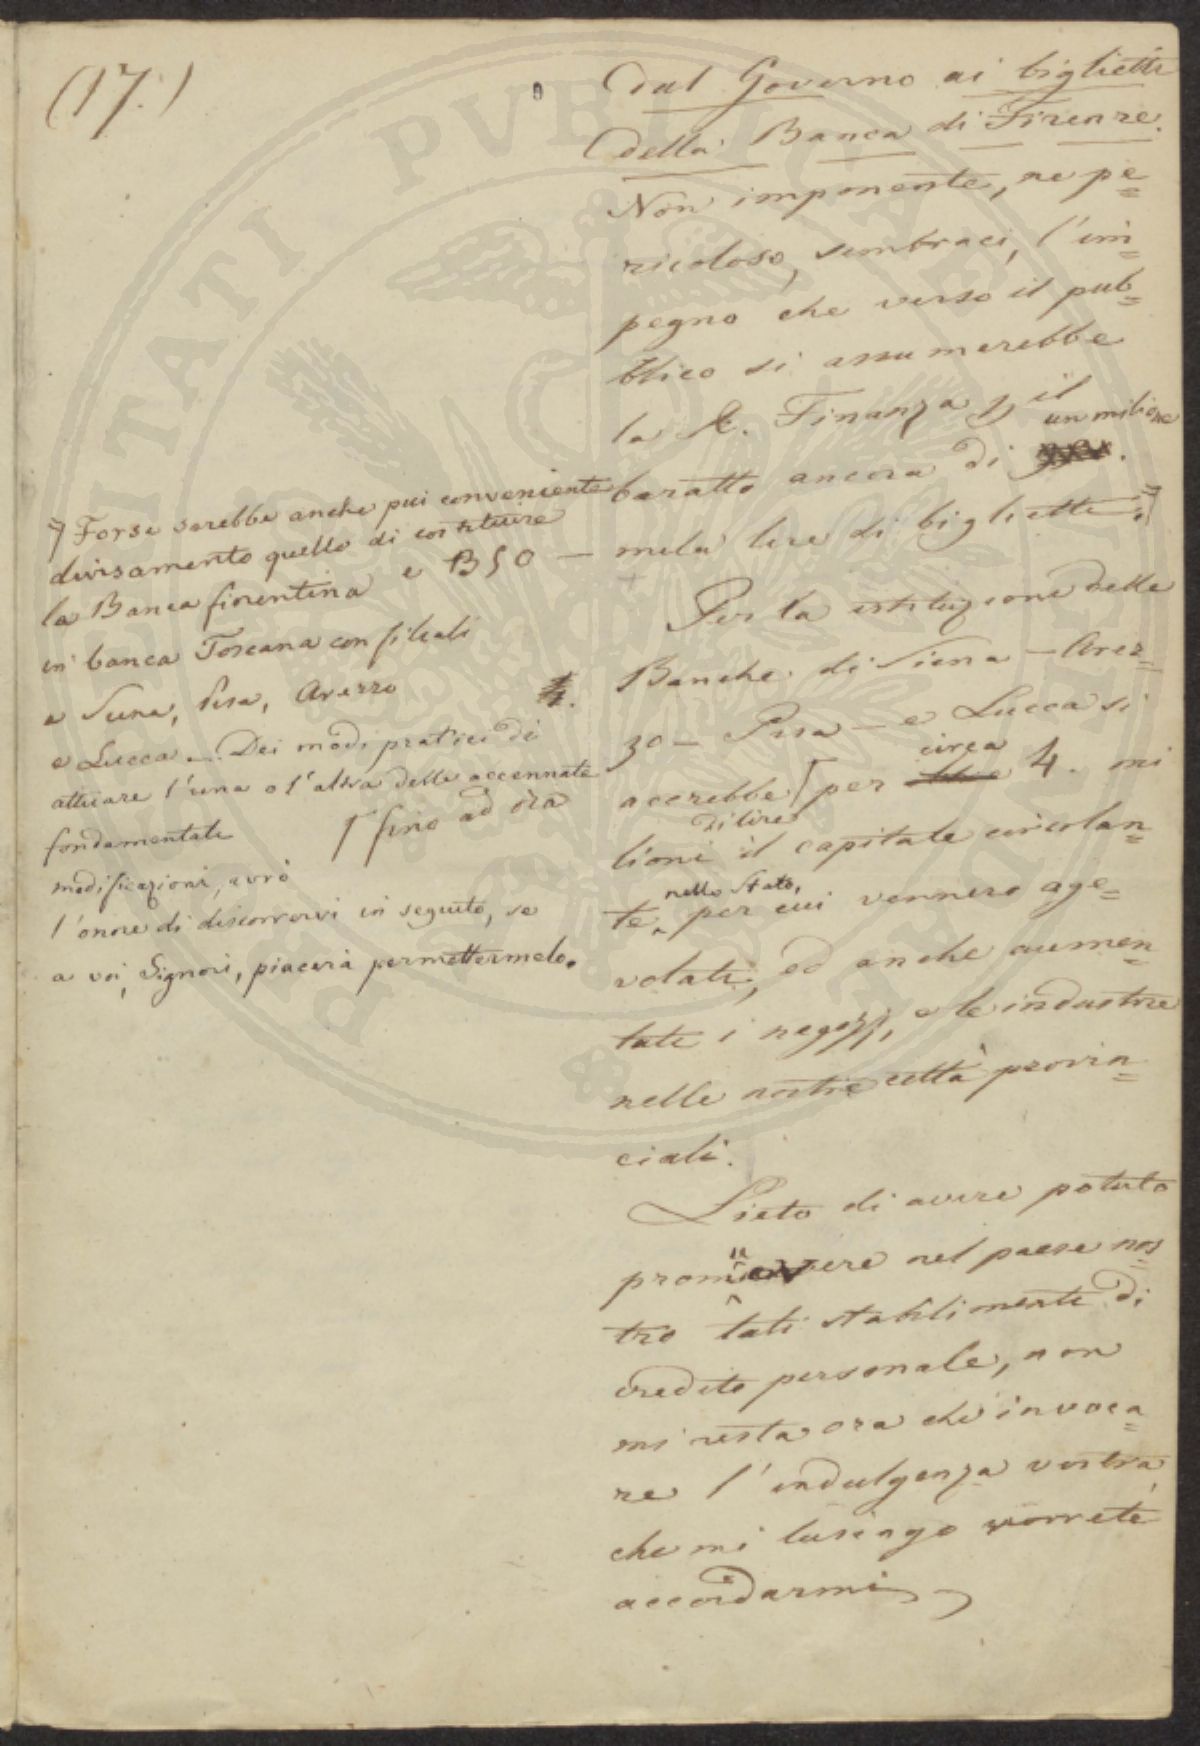 (17.)
dal Governo ai biglietti
della Banca di Firenze.
Non imponente, ne pe=
ricoloso, sembraci, l'im=
pegno che verso il pub=
blico si assumerebbe
la R. Finanza p il
baratto ancora di un milione
mila lire di biglietti.
Per la istituzione delle
Banche di Siena – Arez=
zo – Pisa – e Lucca si
accrebbe per circa 4. mi
lioni di lire il capitale circolan=
te nello Stato, per cui vennero age=
volati, ed anche aumen=
tati i negozj, e le industrie
nelle nostre città provin=
ciali.
Lieto di avere potuto
promuovere nel paese nos=
tro tali stabilimenti di
credito personale, non
mi resta ora che invoca=
re l'indulgenza vostra
che mi lusingo vorrete
accordarmi
Forse sarebbe anche più conveniente
divisamento quello di costituire
la Banca fiorentina
in banca Toscana con filiali
a Siena, Pisa, Arezzo
e Lucca – Dei modi pratici di
attuare l'una o l'altra delle accennate
fondamentali
modificazioni, avrò
l'onore di discorrervi in seguito, se
a voi, Signori, piacerà permettermelo.
fino ad ora
PVBLICAE